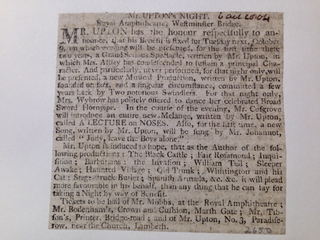 Mr. UPTON's NIGHT. 6 Oct 1804
Royal Amphitheatre, Westminster Bridge.
MR. UPTON has the honour respectfully to an-
nounce, that his Benefit is fixed for Tuesday next, October
9, on which evening will be presented, for the first time these
two years, a Grand Serious Spectacle, written by Mr. Upton, in
which Mrs. Astley has condescended to sustain a principal Cha-
racter. And particularly, never performed, for that night only, will
be presented, a new Musical Production, written by Mr. Upton,
founded on fact, and a singular circumstance, committed a few
years back by Two notorious Swindlers. For that night only,
Mrs. Wybrow has politely offered to dance her celebrated Broad
Sword Hornpipe. In the course of the evening, Mr. Cosgrove
will introduce an entire new Melange, written by Mr. Upton,
called A LECTURE on NOSES. Also, for the last time, a new
Song, written by Mr. Upton, will be sung by Mr. Johannot,
called "Judy, leave the Boys alone."
Mr. Upton is induced to hope, that as the Author of the
following productions; The Black Castle; Fair Rosamond; Inqui-
sition; Barbarossa; the Invasion; William Tell; Sleeper
Awake; Haunted Village; Old Trunk; Whittington and his
Cat; Stage-struck Baker; Spanish Armada, &c. &c. is will plead
more favourable in his behalf, than any thing that he can say for
taking a Night by way of Benefit.
Tickets to be had of Mr. Mobbs, at the Royal Amphitheatre;
Mr. Bodenham's, Crown and Cushion, Marsh Gate; Mr.
son's, Printer, Bridge-road; and of Mr. Upton, No. 3, Paradise-
row, near the Church, Lambeth.